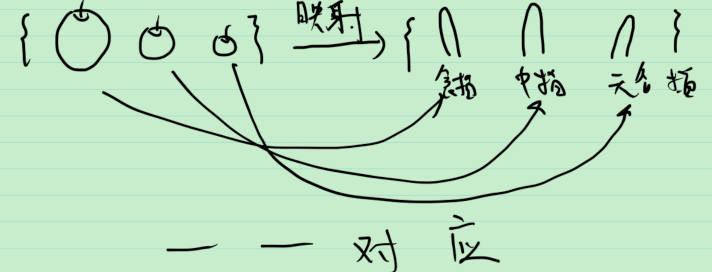 { } 映射 { }
食指 中指 无名指
一一对应